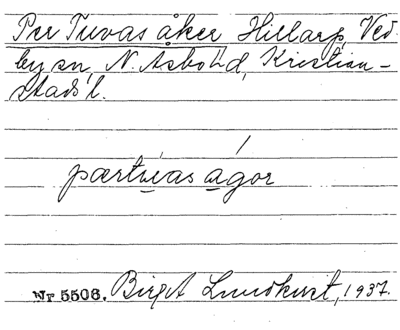 Per Tuvas åker Hillarp, Ved-
by sn, N. Åsbo hd, Kristian-
stads l.
pærtuas agor
Nr 5506. Birgit Lundkvist, 1937.